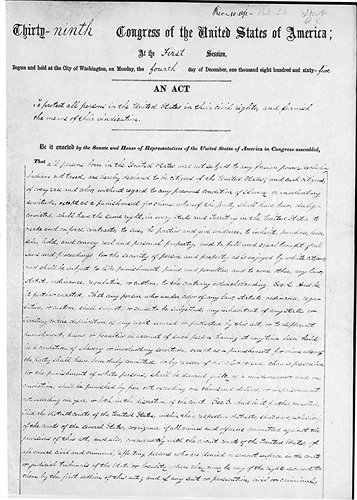 Thirty-ninth Congress of the United States of America;
At the First Session,
Begun and held at the City of Washington, on Monday, the fourth day of December, one thousand eight hundred and sixty-five
AN ACT
To protect all persons in the United States in their civil rights, and furnish
the means of their vindication.
Be it enacted by the Senate and House of Representatives of the United States of America in Congress assembled,
That all persons born in the United States and not subject to any foreign power, excluding
Indians not taxed, are hereby declared to be citizens of the United States; and such citizens,
of every race and color, without regard to any previous condition of slavery or involuntary
servitude, except as a punishment for crime whereof the party shall have been duly
convicted, shall have the same right, in every State and Territory in the United States, to
make and enforce contracts, to sue, be parties, and give evidence, to inherit, purchase, lease,
sell, hold, and convey real and personal property, and to full and equal benefit of all
laws and proceedings for the security of person and property, as is enjoyed by white citizens,
and shall be subject to like punishment, pains, and penalties, and to none other, any law,
statute, ordinance, regulation, or custom, to the contrary notwithstanding. Sec. 2. And be
it further enacted, That any person who, under color of any law, statute, ordinance, regu-
lation, or custom, shall subject, or cause to be subjected, any inhabitant of any State or
Territory to the deprivation of any right secured or protected by this act, or to different
punishment, pains, or penalties on account of such person having at any time been held
in a condition of slavery or involuntary servitude, except as a punishment for crime whereof
the party shall have been duly convicted, or by reason of his color or race, than is prescribed
for the punishment of white persons, shall be deemed guilty of a misdemeanor, and, on
conviction, shall be punished by fine not exceeding one thousand dollars, or imprisonment
not exceeding one year, or both, in the discretion of the court. Sec. 3. And be it further enacted,
That the district courts of the United States, within their respective districts, shall have, exclusively
of the courts of the several States, cognizance of all crimes and offences committed against the
provisions of this act, and also, concurrently with the circuit courts of the United States, of
all causes, civil and criminal, affecting persons who are denied or cannot enforce in the courts
or judicial tribunals of the State or locality where they may be any of the rights secured to
them by the first section of this act; and if any suit or prosecution, civil or criminal,